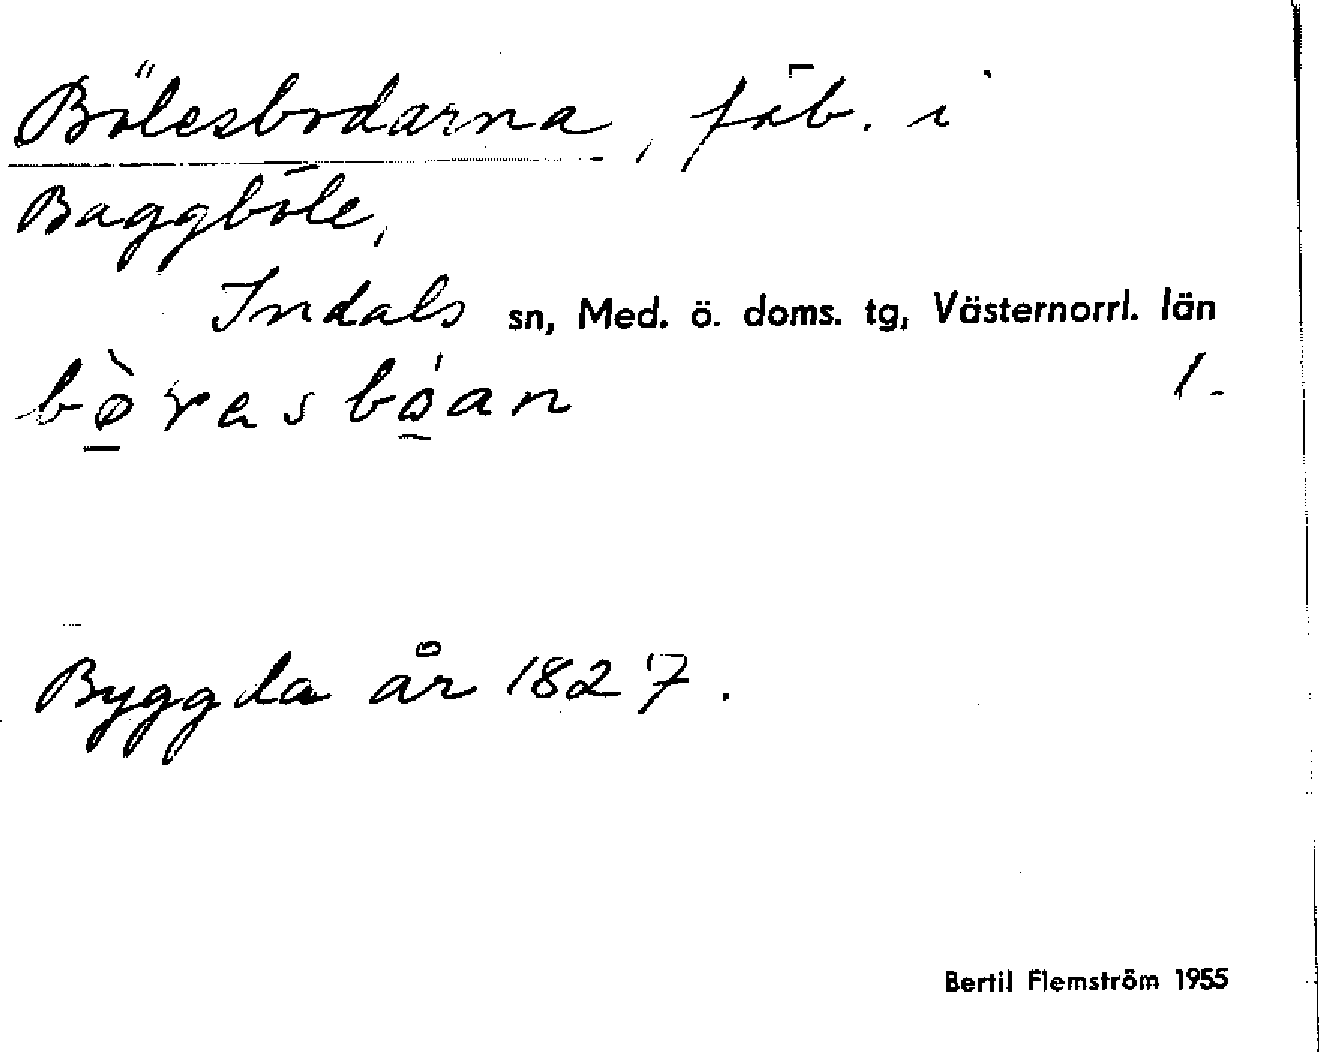 Bölesbodarna, fäb. i
Baggböle,
Indals sn, Med. ö. doms. tg, Västernorrl. län
bø̀rasbóan 1.
Byggda år 1827.
Bertil Flemström 1955